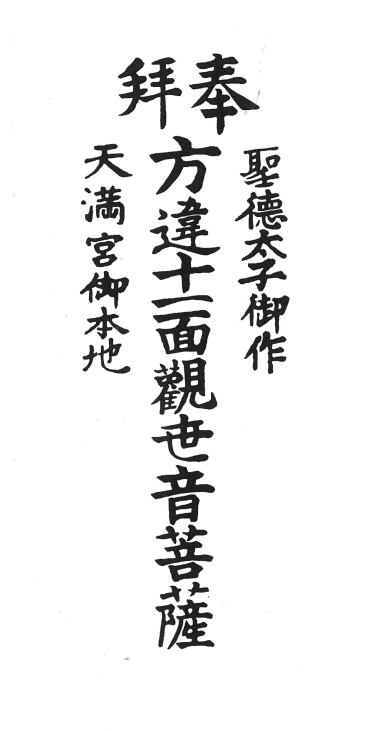 奉拜
聖德太子御作
方違十一面觀世音菩薩
天満宮御本地